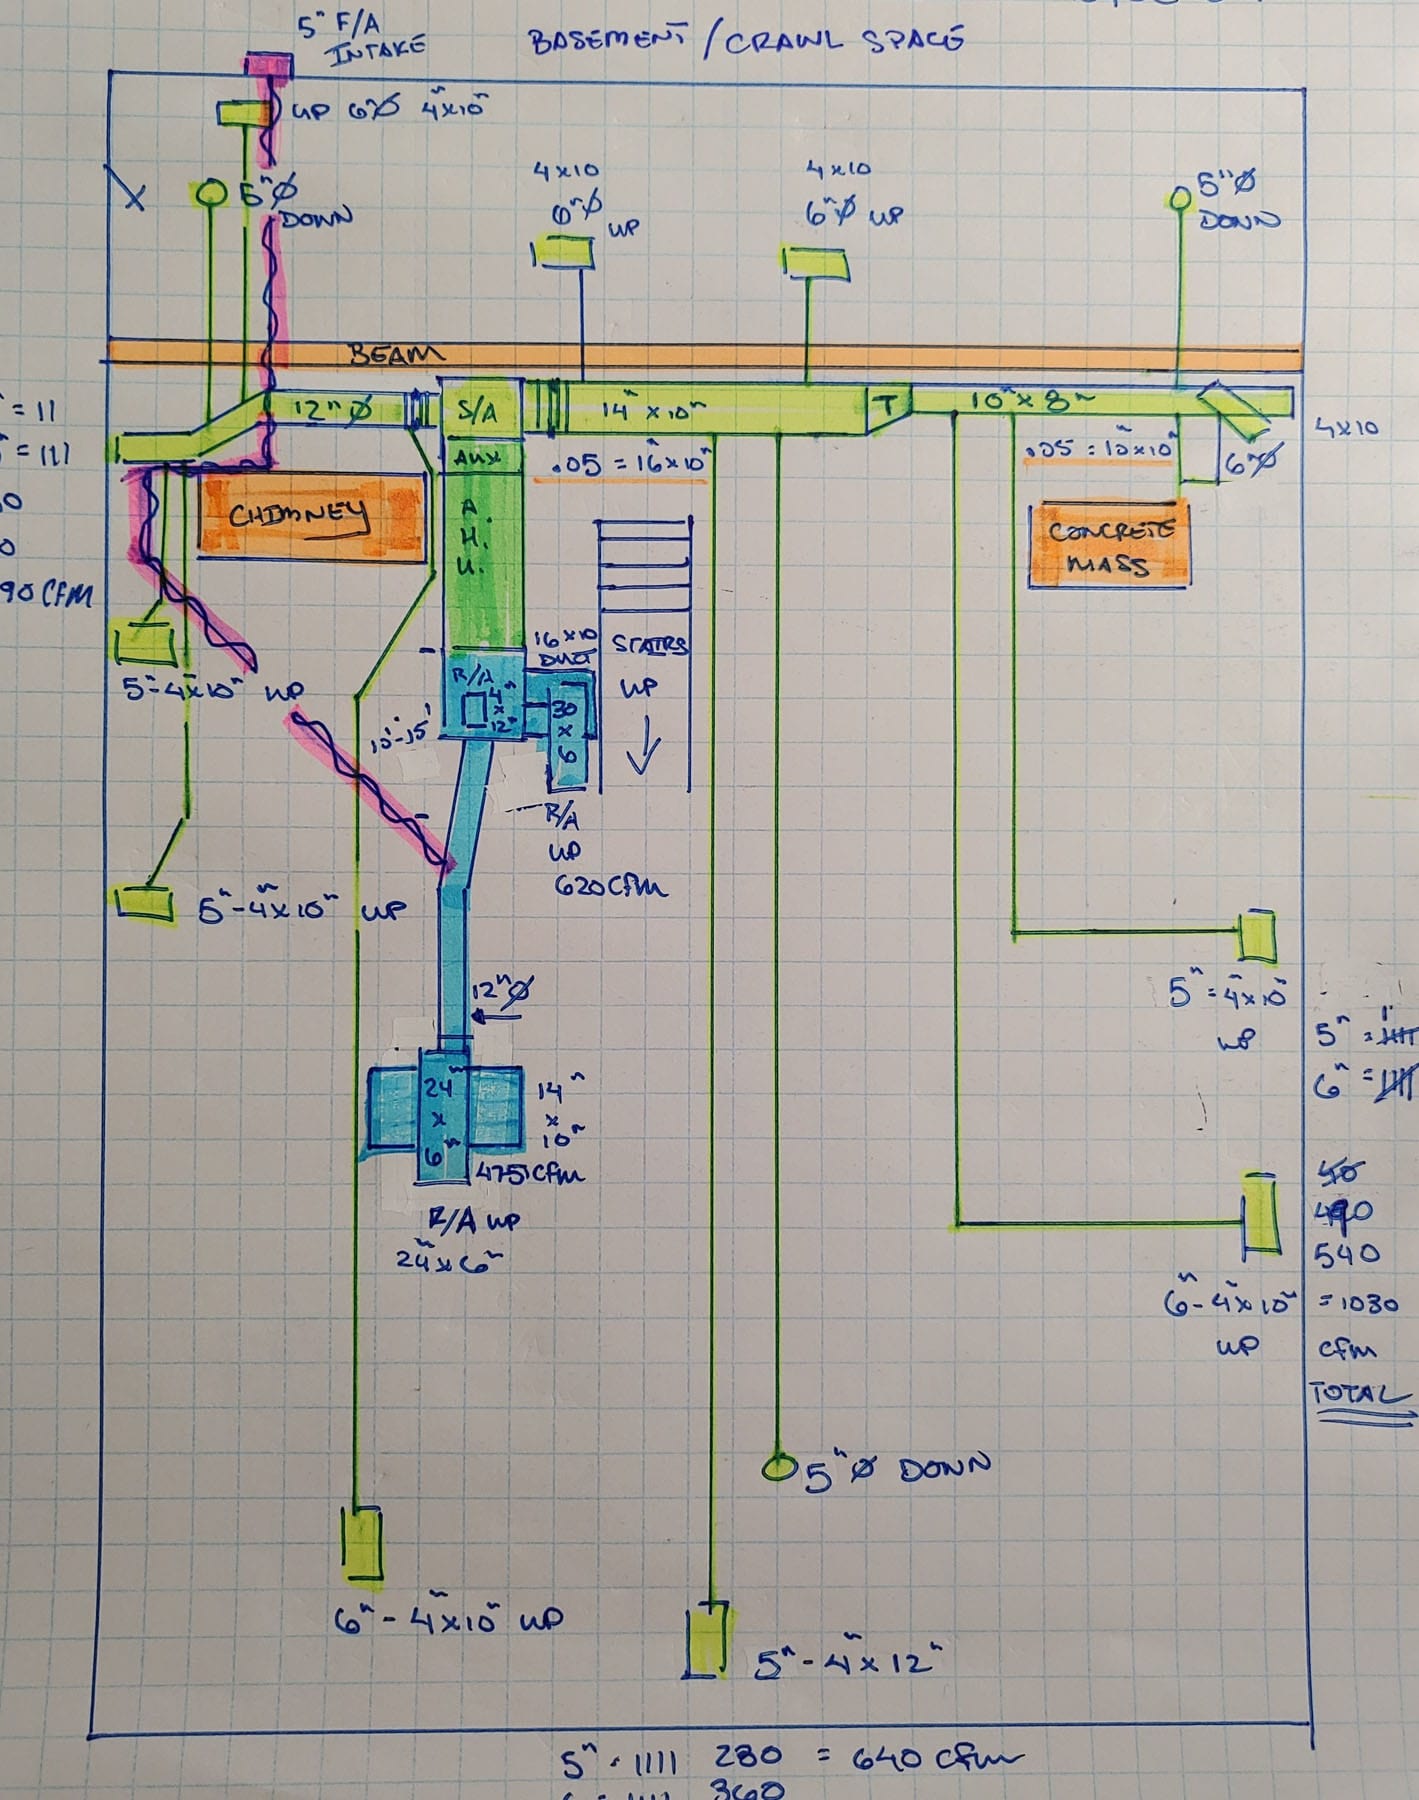 5" F/A
INTAKE
BASEMENT / CRAWL SPACE
UP 6"Ø 4"x10"
5"Ø
DOWN
4x10
6"Ø UP
4x10
6"Ø UP
5"Ø
DOWN
BEAM
12"Ø
S/A
14" x 10"
T
10" x 8"
= 11
= 111
90 CFM
AUX
.05 = 16"x10"
.05 = 10"x10"
4x10
6"Ø
CHIMNEY
A.
H.
U.
CONCRETE
MASS
16x10
DUCT
STAIRS
UP
R/A
4"
x
12"
30
x
6
5"-4"x10" UP
10'-15'
R/A
UP
620 CFM
5"-4"x10" UP
12"Ø
5"=4"x10"
UP
24"
x
6"
14"
x
10"
475 CFM
R/A UP
24"x6"
490
540
= 1030
cfm
TOTAL
6"-4"x10"
UP
5"Ø DOWN
6"-4"x10" UP
5"-4"x12"
5" · 1111 280 = 640 cfm
360